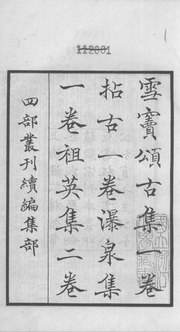 112001
雪竇頌古集一卷
拈古一卷瀑泉集
一卷祖英集二卷
四部叢刊續編集部